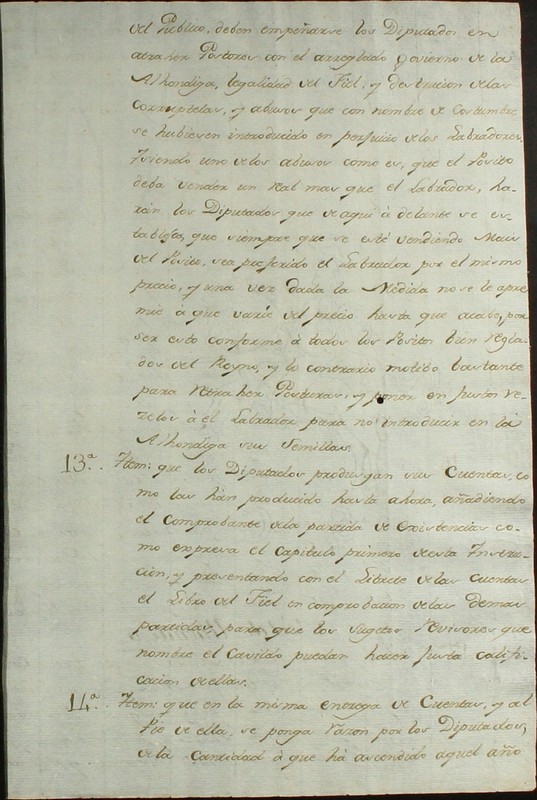 del Publico, deben empeñarse los Diputados en
atraher Postores con el arreglado govierno de la
Alhondiga, legalidad del Fiel, y destrucion de las
Corruptelas, y abusos que con nombre de Costumbre
se hubiesen introducido en perjuicio de los Labradores.
Y siendo uno de los abusos como es, que el Posito
deba vender un real mas que el Labrador, ha-
rán los Diputados que de aqui à delante se es-
tablesca, que siempre que se esté vendiendo Maiz
del Posito, sea preferido el Labrador por el mismo
precio, y una vez dada la Medida no se le apre
mie à que varíe del precio hasta que acabe, por
ser esto conforme à todos los Positos bien regla-
dos del Reyno, y lo contrario motibo bastante
para retraher Posturas, y poner en justos re-
zelos à el Labrador para no introducir en la
Alhondiga sus Semillas.
13.ª Item: que los Diputados produsgan sus Cuentas, co
mo las hán producido hasta ahora, añadiendo
el Comprobante de la partida de Existencias co-
mo expresa el Capitulo primero de esta Instruc-
cion, y presentando con el Librete de las Cuentas
el Libro del Fiel en comprobacion de las demas
partidas, para que los Sugetos Revisores que
nombre el Cavildo puedan hacer justa califi-
cacion de ellas.
14.ª Item: que en la misma entrega de Cuentas, y al
Pie de ella, se ponga razon por los Diputados,
de la Cantidad à que há ascendido aquel año